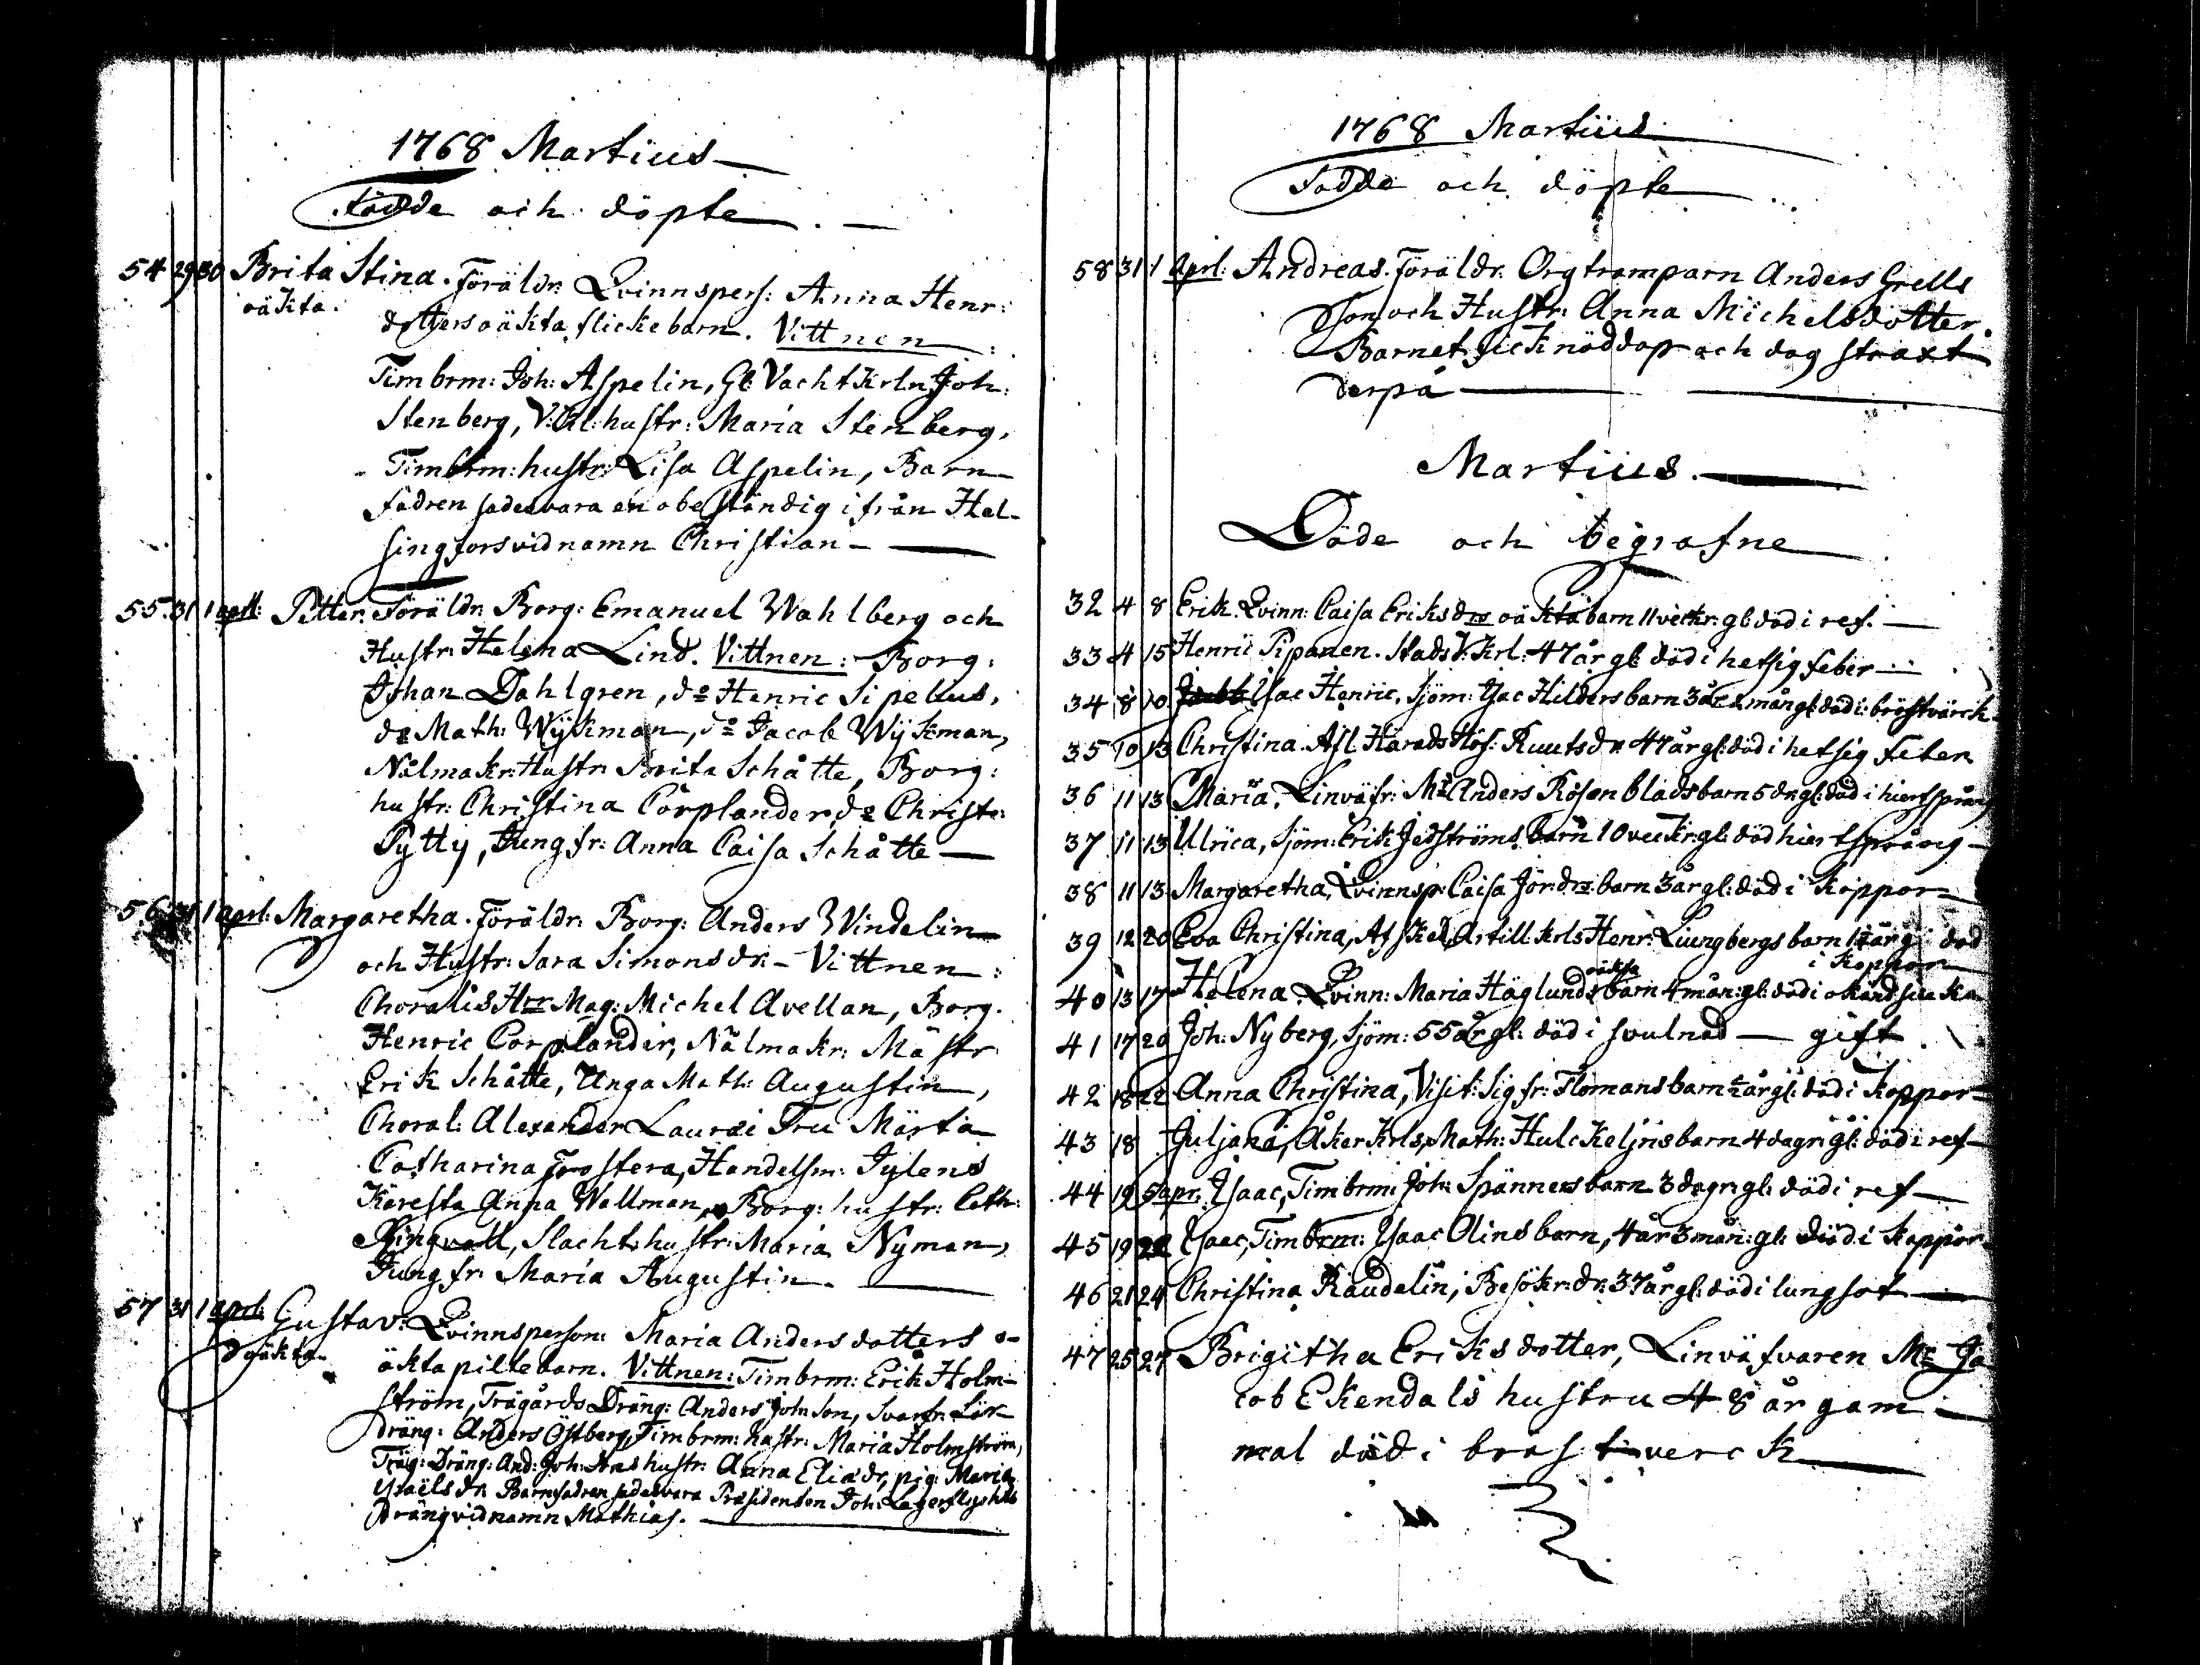 1768 Martius
Födde och döpte
54 29 30 Brita Stina. Föräldr: Qvinnspers: Anna Henr:
oäkta. dotters oäkta flickebarn. Vittnen:
Timbrm: Joh: Aspelin, Gl: Vachtkrln Joh:
Stenberg, V:kl: hustr: Maria Stenberg,
Timbrm: hustr: Lisa Aspelin, Barn
fadren sades vara en obeständig ifrån Hel-
singfors vid namn Christian
55. 31 1 april: Petter. Föräldr: Borg: Emanuel Wahlberg och
Hustr: Helena Lind. Vittnen: Borg:
Johan Dahlgren, do Henric Sipelius,
do Math: Wijkman, do Jacob Wijkman,
Nålmakr: Hustr: Brita Schåtte, Borg:
hustr: Christina Corplander, do Christ:
Pytty, Jungfr: Anna Caisa Schåtte
56 31 1 aprl: Margaretha. Föräldr: Borg: Anders Windelin
och Hustr: Sara Simonsdr: Vittnen:
Choralis Herr Mag: Michel Avellan, Borg.
Henric Corplander, Nålmakr: Mästr
Erik Schåtte, Unga Math: Augustin,
Choral: Alexander Lauræi Fru Märta
Catharina Forstera, Handelsm: Jylens
Käresta Anna Wallman, Borg: hustr: Cath:
Ringvall, Slacht: hustr: Maria Nyman,
Jungfr: Maria Augustin.
57 31 1 aprl: Gustav: Qvinnsperson: Maria Andersdotters o-
oäkta äkta piltebarn. Vittnen: Timbrm: Erik Holm-
ström, Trägårds Dräng: Anders Johnson, Svarfr: Lär
dräng: Anders Östberg, Timbrm: hustr: Maria Holmström,
Träg: Dräng: And: Joh: hustr: Anna Eliædr, pig: Maria
Ysaëlsdr: Barnfadren sades vara Præsidenten Joh: Lagerflychts
Dräng vid namn Mathias.
1768 Martius
Födde och döpte
58 31 1 Aprl: Andreas. Föräldr: Orgtramparn Anders Grells
Son och Hustr: Anna Michelsdotter.
Barnet fick nöddop och dog straxt
derpå
Martius.
Döde och begrafne
32 4 8 Erik. Qvinn: Caisa Eriksdrs oäkta barn 11 veckr: gl: död i ref.
33 4 15 Henric Pipanen. Stads V:krl: 47 år gl: död i hetsig feber
34 8 10 Isac Henric, Sjöm: Ysac Hilders barn 3 år 2 mån gl: död i bröstvärck
35 10 13 Christina. Afl Härads Höf: Ruutsdr 47 år gl: död i hetsig feber
36 11 13 Maria, Linväfr: Mr Anders Rosenblads barn 5 dr: gl: död i hiertsprång
37 11 13 Ulrica, Sjöm: Erik Jedströms barn 10 veckr: gl: död hiertsprång
38 11 13 Margaretha, Qvinnsp: Caisa Jör:drs: barn 3 år gl: död i koppor
39 12 20 Eva Christina, Afsked, Artill: krls Henr: Liungbergs barn år gl död
i koppor
40 13 17 Helena Qvinn: Maria Häglunds oäkta barn 4 mån: gl: död i okänd siuka
41 17 20 Joh: Nyberg, Sjöm: 55 år gl: död i svulnad gift
42 18 22 Anna Christina, Visit: Sigfr: Flomans barn ½ år gl: död i koppor
43 18 Juljana, Åker Krls Math: Hulckeljns barn 4 dagr gl: död i ref
44 19 5 apr: Isaac, Timbrm: Joh: Spänners barn 3 dagr gl: död i ref
45 19 22 Isaac, Timbrm: Ysaac Olins barn, 4 år 3 mån: gl: död i koppor
46 21 24 Christina Raudelin, Besökr: dr: 37 år gl: död i lungsot
47 25 27 Brigitha Eriksdotter, Linväfvaren Mr Ja
cob Ekendals hustru 48 år gam
mal död i bröstverck